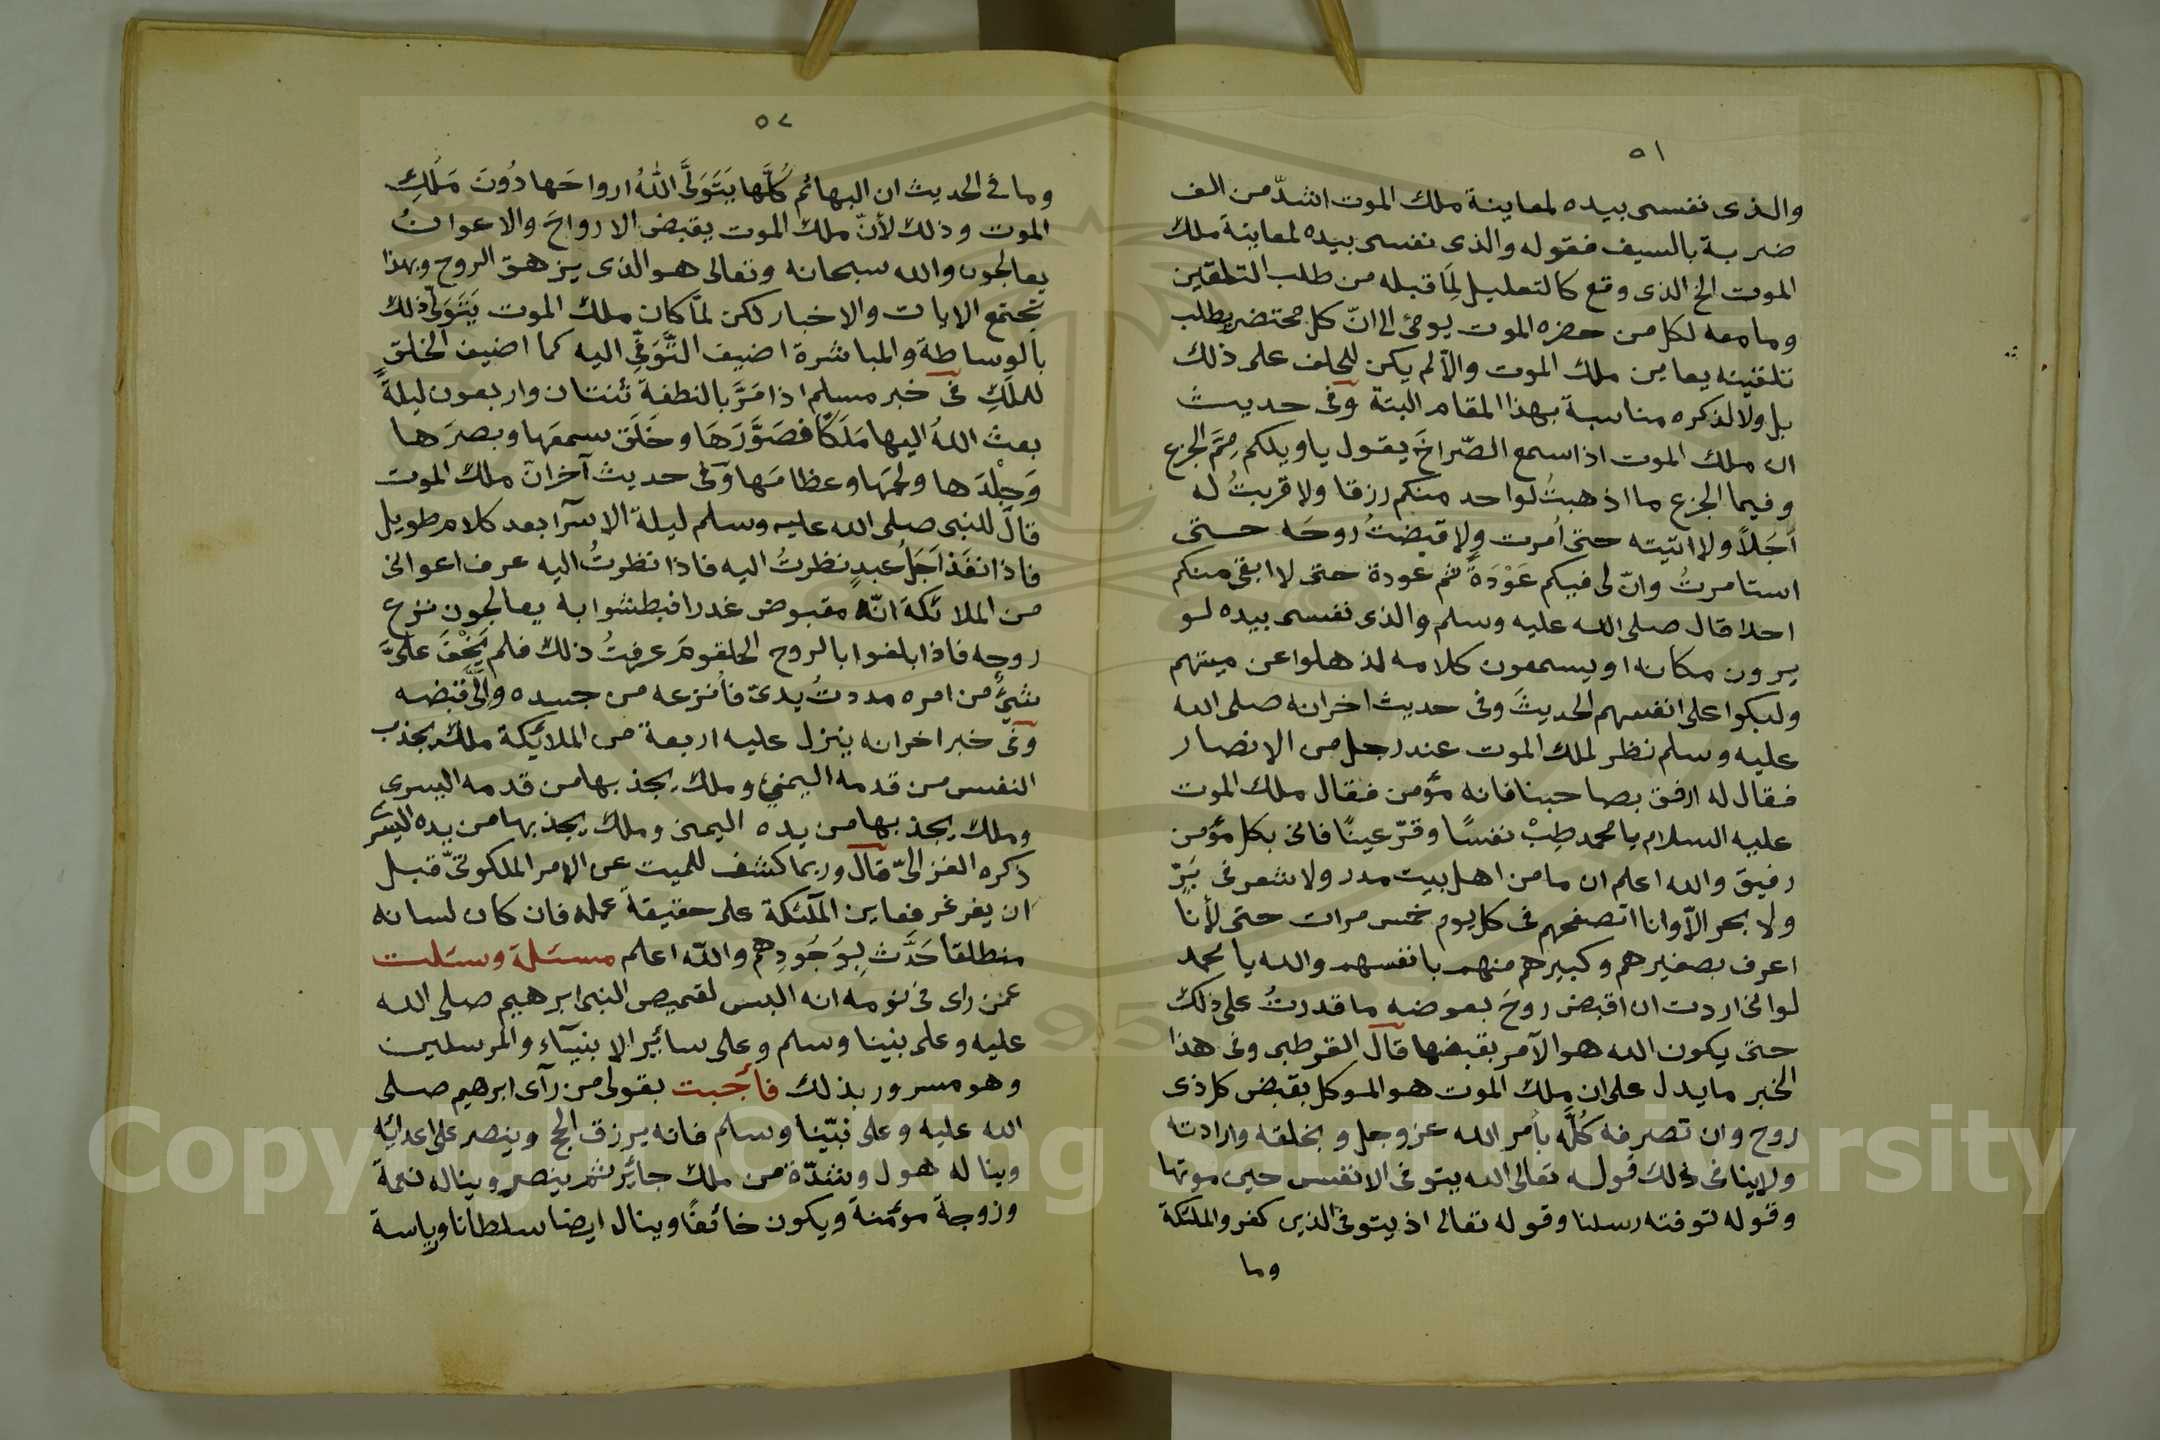 ٥١
والذى نفسى بيده لمعاينة ملك الموت اشدّ من الف
ضربة بالسيف فقوله والذى نفسى بيده لمعاينة ملك
الموت الخ الذى وقع كالتعليل لِمَا قبله من طلب التلقين
وما معه لكل من حضره الموت يومئ الى انّ كل محتضر يطلب
تلقينه يعاين ملك الموت والّا لم يكن للحلف على ذلك
بل ولا لذكره مناسبة بهذا المقام البتة وفى حديث
ان ملك الموت اذا سمع الصّراخَ يقول يا ويلكم مِمَّ الجزع
وفيما الجزع ما اذهبتُ لواحد منكم رزقا ولا قربتُ له
اَجَلاً ولا اتيته حتى اُمرت ولا قبضتُ روحَه حتى
استامرتُ وانّ لى فيكم عَوْدَةً ثم عودة حتى لا ابقى منكم
احدا قال صلى الله عليه وسلم والذى نفسى بيده لو
يرون مكانه او يسمعون كلامه لذهلوا عن ميتهم
ولبكوا على انفسهم الحديثَ وفى حديث اخر انه صلى الله
عليه وسلم نظر لملك الموت عند رجل من الانصار
فقال له ارفق بصاحبنا فانه مؤمن فقال ملك الموت
عليه السلام يا محمد طِبْ نفسًا وقرّ عينًا فانى بكل مؤمن
رفيق والله اعلم ان ما من اهل بيت مدر ولا شعر فى بَرّ
ولا بحر الّا وانا اتصفحهم فى كل يوم خمس مرات حتى لأنا
اعرف بصغيرهم وكبيرهم منهم بانفسهم والله يا محمد
لو انى اردت ان اقبض روحَ بعوضه ما قدرتُ على ذلك
حتى يكون الله هو الآمر بقبضها قال القرطبى وفى هذا
الخبر ما يدل على ان ملك الموت هو الموكل بقبض كل ذى
روح وان تصرفه كُلَّه بأمر الله عز وجل وبخلقه وارادته
ولا ينافى ذلك قوله تعالى الله يتوفى الانفس حين موتها
وقوله توفته رسلنا وقوله تعالى اذ يتوفى الذين كفروا الملئكة
وما
٥٢
وما فى الحديث ان البهائم كُلَّها يَتَوَلَّى اللهُ ارواحَها دُونَ مَلَكِ
الموت وذلك لأنّ ملك الموت يقبض الارواحَ والاعوانُ
يعالجون والله سبحانه وتعالى هو الذى يزهق الروح وبهذا
تجتمع الايات والاخبار لكن لمّا كان ملك الموت يَتَوَلّى ذلك
بالوساطة والمباشرة اضيف التَّوَفِّى اليه كما اضيف الخلق
للملَكِ فى خبر مسلم اذا مَرَّ بالنطفة ثنتان واربعون ليلةً
بعث اللهُ اليها مَلَكًا فصَوَّرَهَا وخَلَقَ سمعَها وبصرَها
وَجِلْدَها ولحمَها وعظامَها وفى حديث آخر انّ ملك الموت
قال للنبى صلى الله عليه وسلم ليلة الاسرآ بعد كلام طويل
فاذا نفَذ اَجَلُ عبدٍ نظرتُ اليه فاذا نظرتُ اليه عرف اعوانى
من الملائكة انّه مقبوض غدرا فبطشوا به يعالجون نزع
روحه فاذا بلغوا بالروح الحلقومَ عرفتُ ذلك فلم يَخْفَ علىّ
شئٌ من امره مددتُ يدىّ فأنزعه من جسده وَالِّى قبضه
وفى خبر اخر انه ينزل عليه اربعة من الملائكة ملك يجذب
النفس من قدمه اليمنى وملك يجذبها من قدمه اليسرى
وملك يجذبها من يده اليمنى وملك يجذبها من يده اليسرى
ذكره الغزالىّ قال وربما كشف للميت عن الامر الملكوتىّ قبل
ان يغرغر فعاين الملئكة على حقيقة عمله فان كان لسانه
منطلقا حَدَّث بِوُجُودِهم والله اعلم مسئلة وسئلت
عمن راى فى نومه انه البس لقميص النبى ابرهيم صلى الله
عليه وعلى نبينا وسلم وعلى سائر الانبيآء والمرسلين
وهو مسرور بذلك فأجبت بقولى من رآى ابرهيم صلى
الله عليه وعلى نبيّنا وسلم فانه يرزق الحج وينصر على اعدائه
ويناله هول وشدّة من ملك جائر ثم ينصر ويناله نعمة
وزوجة مؤمنة ويكون خائفًا وينال ايضا سلطانا ورياسة
Copyright © King Saud University